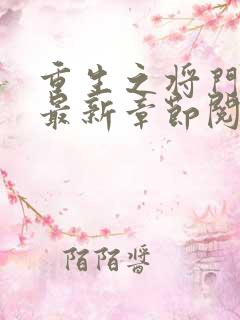 重生之将门
最新章节阅
陌陌酱